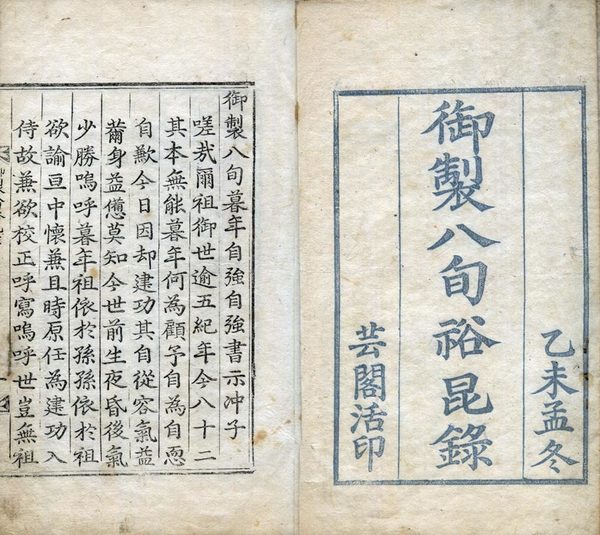 乙未孟冬
御製八旬裕昆錄
芸閣活印
御製八旬暮年自強自強書示沖子
嗟哉爾祖御世逾五紀年今八十二
其本無能暮年何為顧予自為自恧
自歎今日因却建功其自從容氣益
薾身益憊莫知今世前生夜昏後氣
少勝嗚呼暮年祖依於孫孫依於祖
欲諭亘中懷兼且時原任為建功入
侍故兼欲校正呼寫嗚呼世豈無祖